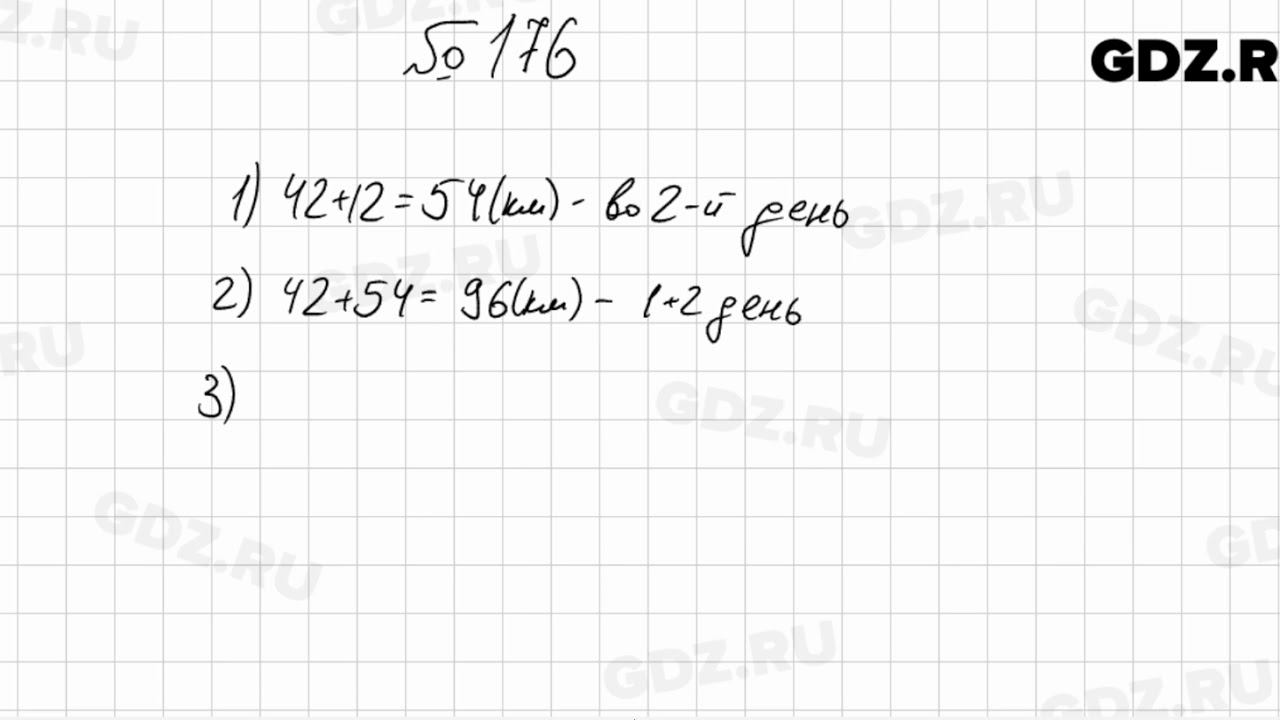 № 176
GDZ.R
1) 42+12=54(км) - во 2-й день
2) 42+54= 96(км) - 1+2 день
3)
GDZ.RU
GDZ.RU
GDZ.RU
GDZ.RU
GDZ.RU
GDZ.RU
GDZ.RU
GDZ.RU